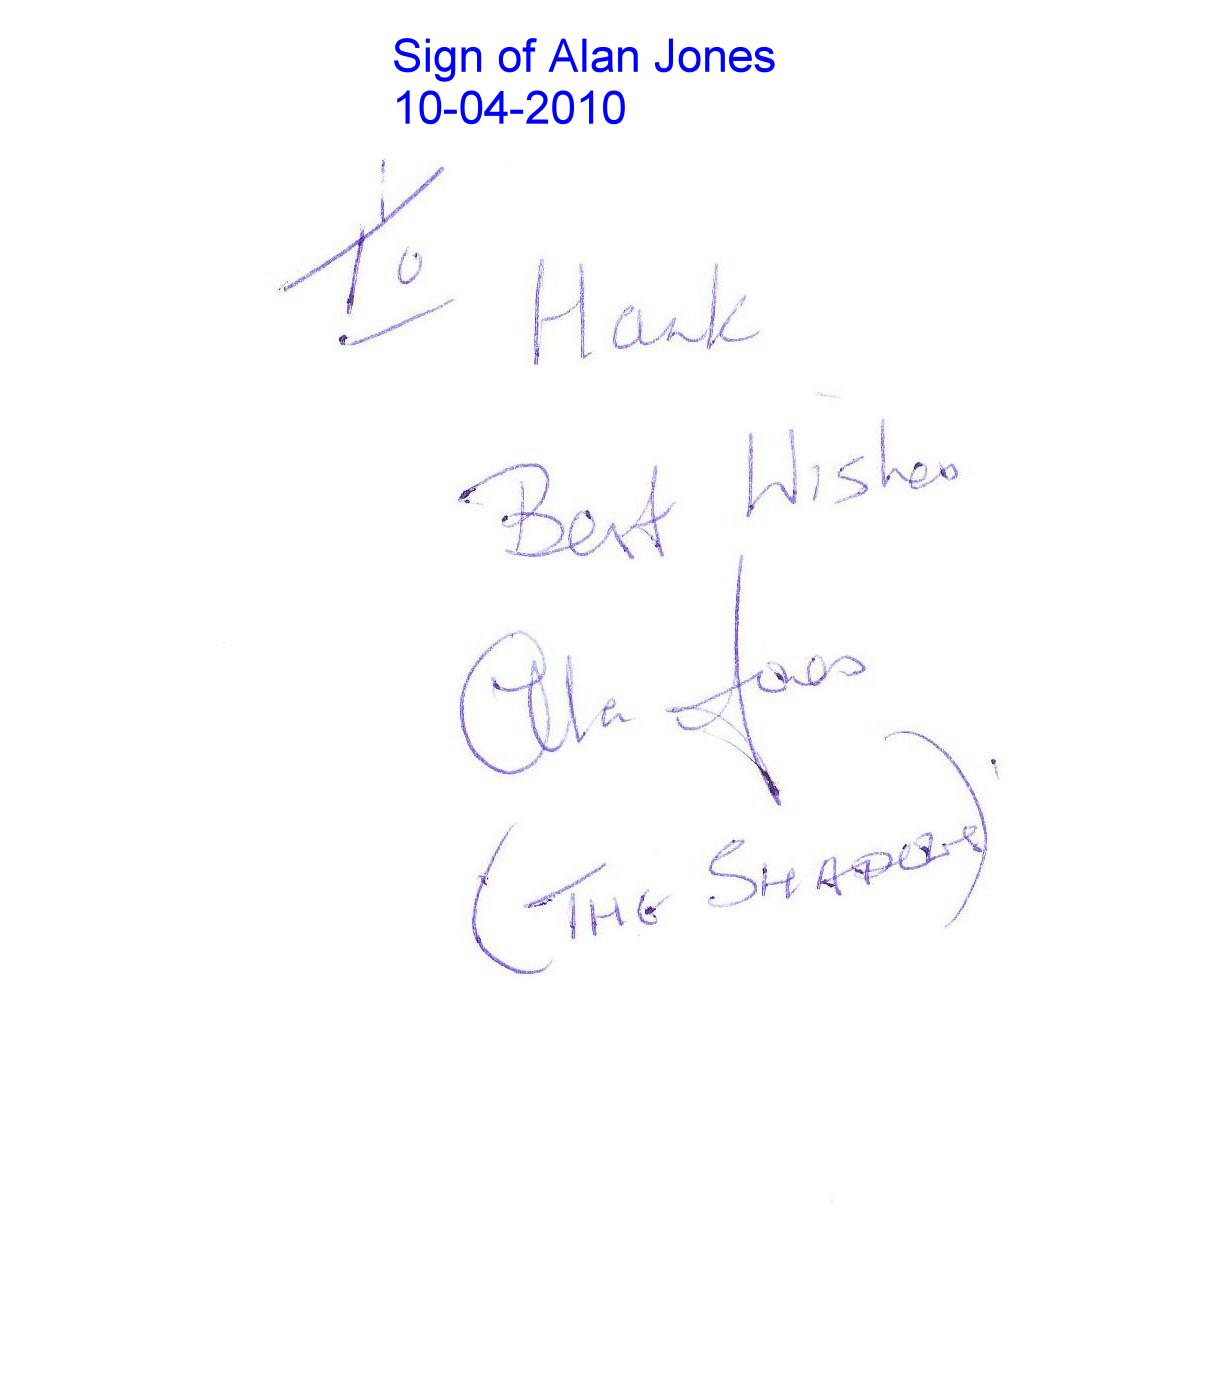 Sign of Alan Jones
10-04-2010
To
Hank
Best Wishes
Alan Jones
(THE SHADOWS)